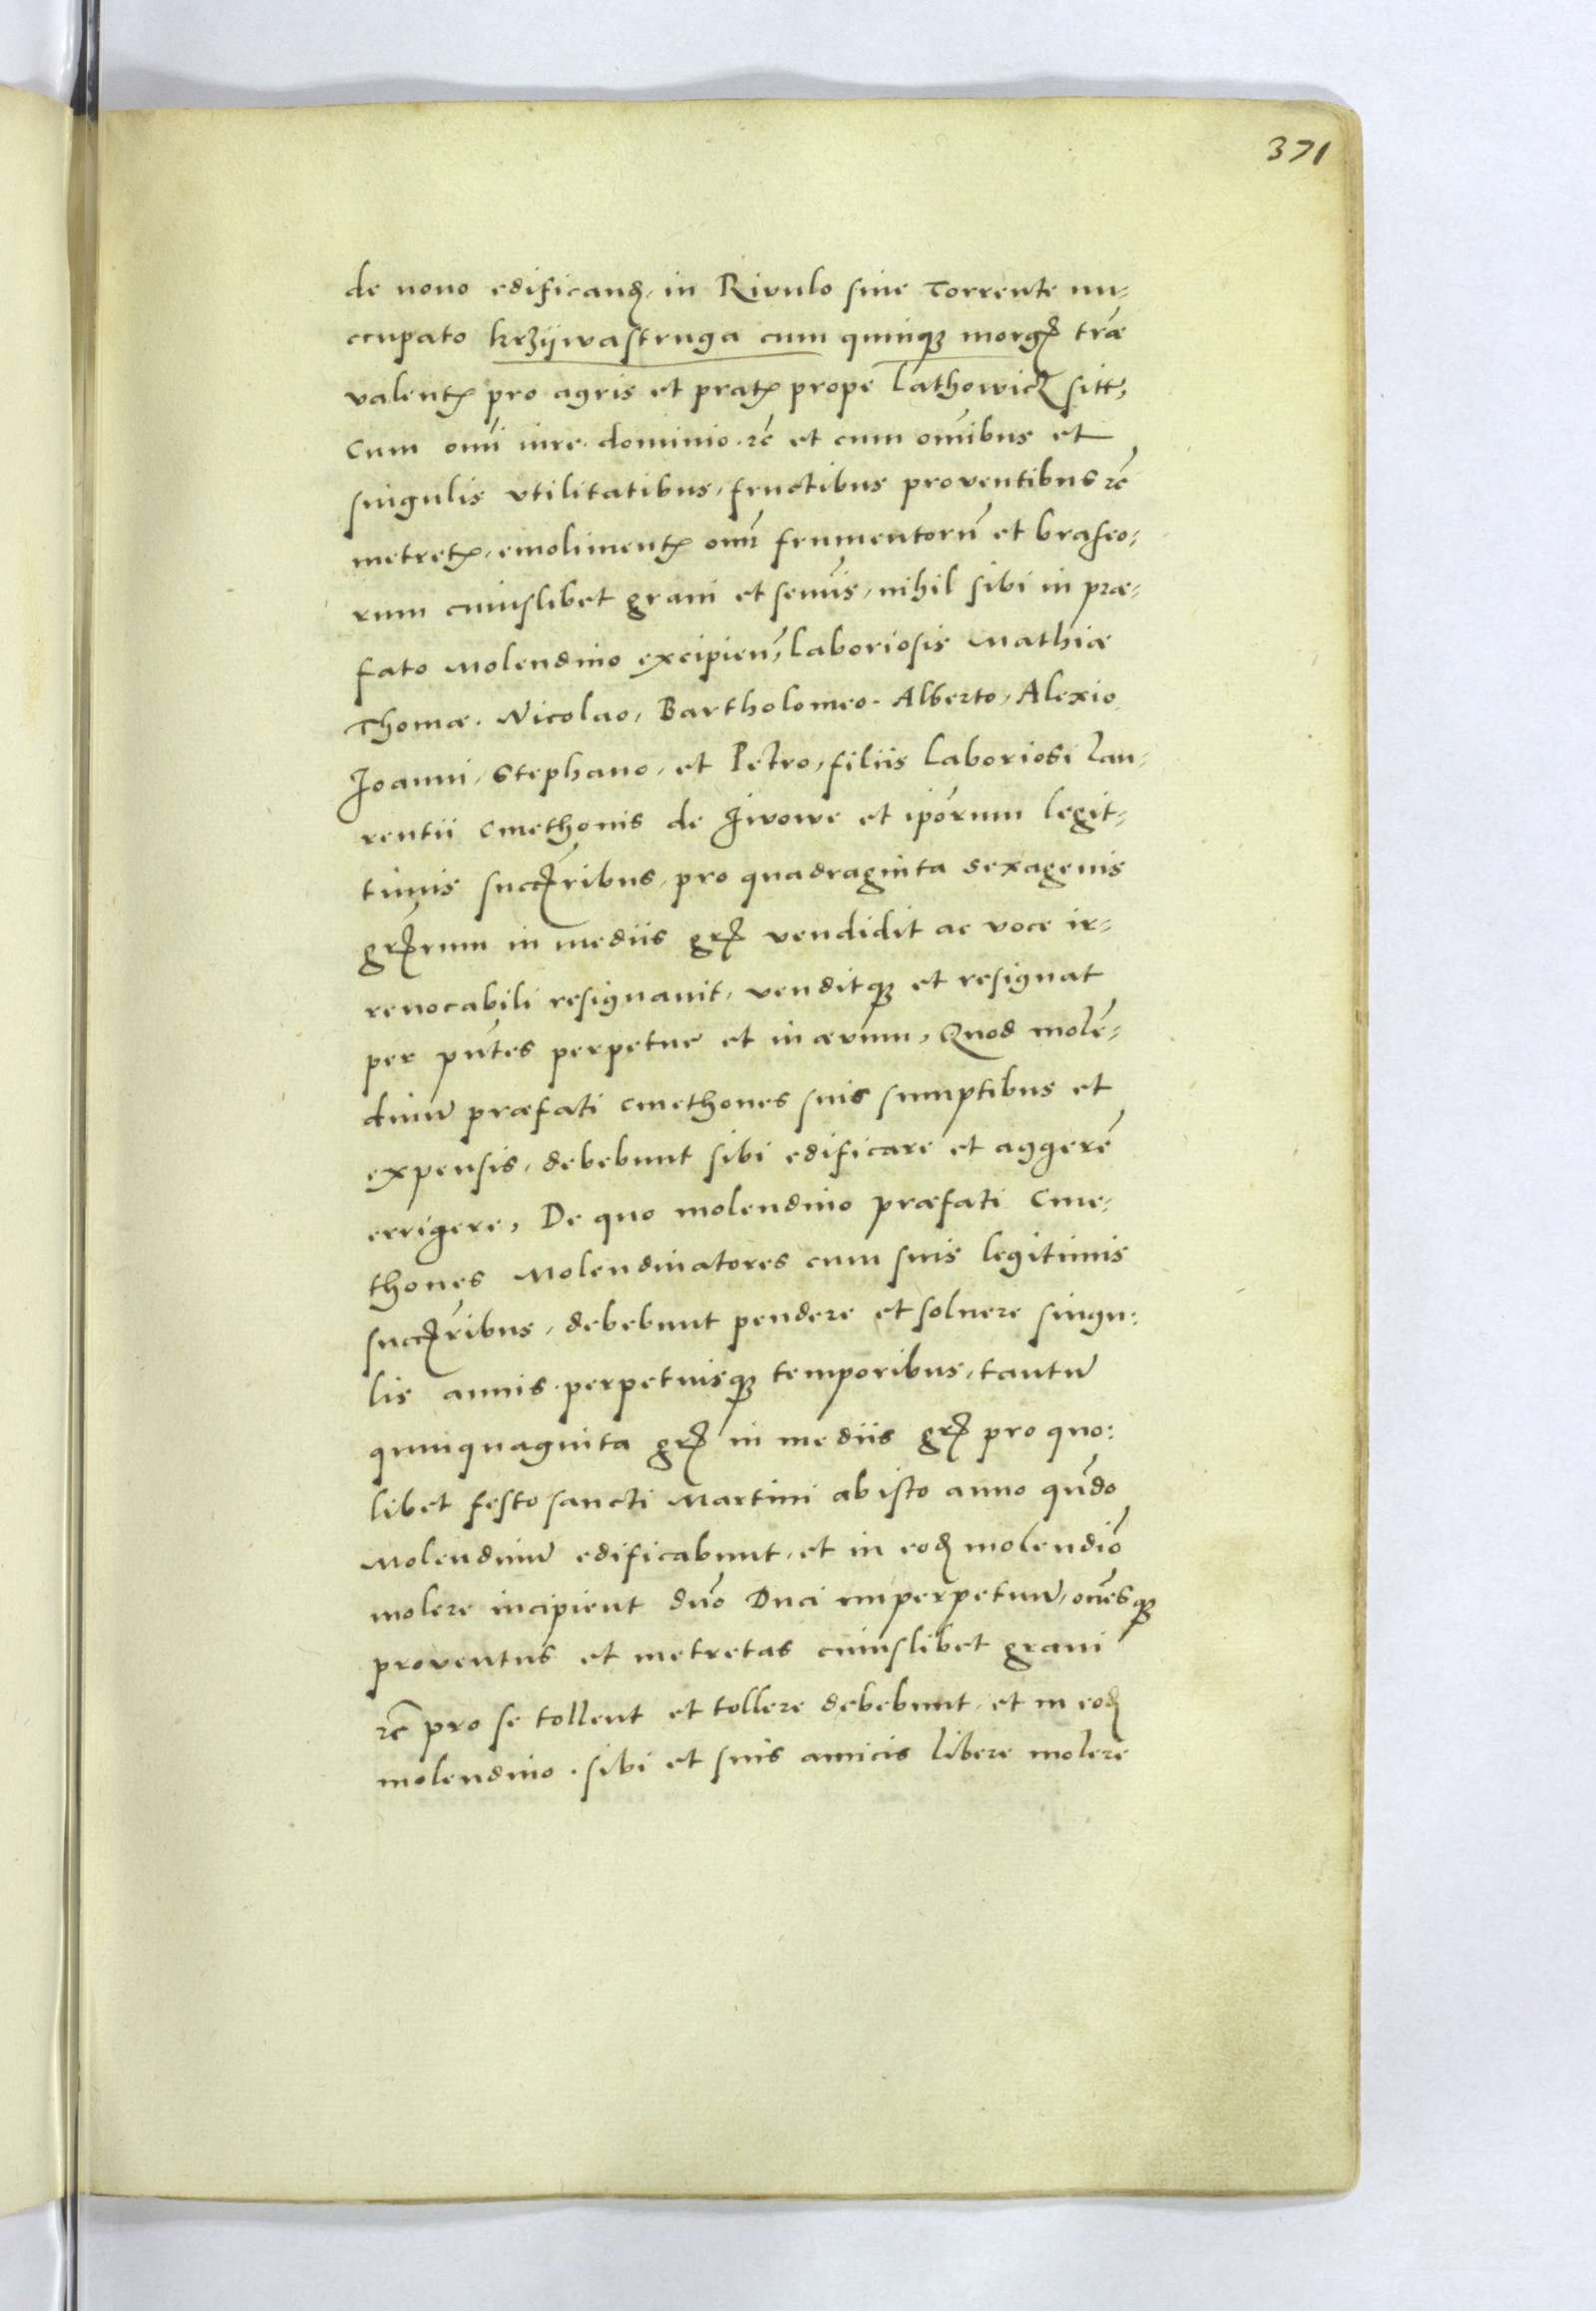 371
de nouo edificand, in Riuulo siue Torrente nu-
ccupato krzÿwastruga cum quinq3 morg tr̄æ
valent pro agris et prat prope Lathowicz sitt,
Cum oīni iure. dominio. rc̄ et cum om̄ibus et
singulis vtilitatibus, fructibus proventibus rc̄
metret, emoliment omī frumentorū et braseo:
rum cuiuslibet grani et semīs, nihil sibi in præ-
fato Molendino excipien, laboriosis Mathiæ
Thomæ. Nicolao, Bartholomeo. Alberto, Alexio
Joanni, Stephano, et Petro, filiis laboriosi Lau-
rentii Cmethonis de Jwowe et ipōrum legit-
timis succ̄ribus, pro quadraginta sexagenis
gr̄rum in mediis gr̄ vendidit ac voce ir-
reuocabili resignauit, venditq3 et resignat
per pn̄tes perpetue et in ævum, Quod molē-
dinū præfati cmethones suis sumptibus et
expensis, debebunt sibi edificare et aggerē
errigere, De quo molendino præfati Cme-
thones Molendinatores cum suis legitimis
succ̄ribus, debebunt pendere et soluere singu-
lis annis. perpetuisq3 temporibus, tantū
quinquaginta gr̄ in mediis gr̄ pro quo:
libet festo sancti Martini ab isto anno qn̄do
Molendinū edificabunt, et in eod molendīo
molere incipient dn̄o Duci imperpetuū, oēsq3
proventus et metretas cuiuslibet grani
rc̄ pro se tollent et tollere debebunt, et in eod
molendino. sibi et suis amicis libere molere